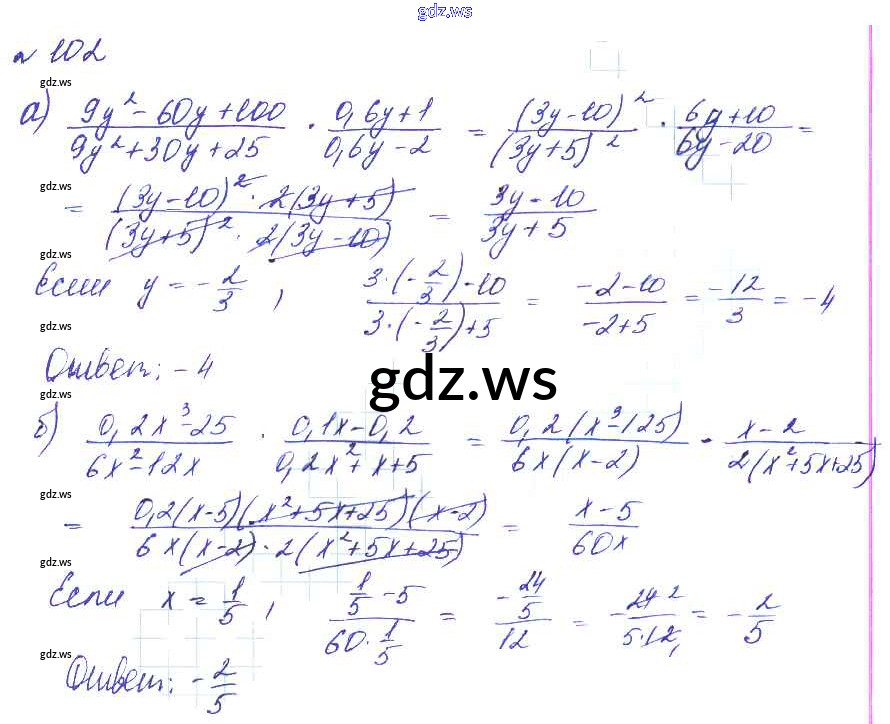 gdz.ws
№ 102
gdz.ws
а) (9y² - 60y + 100)/(9y² + 30y + 25) · (0,6y + 1)/(0,6y - 2) = (3y - 10)²/(3y + 5)² · (6y + 10)/(6y - 20) =
gdz.ws
= ((3y - 10)² · 2(3y + 5))/((3y + 5)² · 2(3y - 10)) = (3y - 10)/(3y + 5)
gdz.ws
Если y = - 2/3 , (3·(-2/3) - 10)/(3·(-2/3) + 5) = (-2 - 10)/(-2 + 5) = -12/3 = -4
gdz.ws
Ответ: - 4
gdz.ws
gdz.ws
б) (0,2x³ - 25)/(6x² - 12x) · (0,1x - 0,2)/(0,2x² + x + 5) = (0,2(x³ - 125))/(6x(x - 2)) · (x - 2)/(2(x² + 5x + 25))
gdz.ws
= (0,2(x - 5)(x² + 5x + 25)(x - 2))/(6x(x - 2) · 2(x² + 5x + 25)) = (x - 5)/(60x)
gdz.ws
Если x = 1/5 , (1/5 - 5)/(60 · 1/5) = (-24/5)/12 = - (24 2)/(5·12 1) = - 2/5
gdz.ws
Ответ: - 2/5